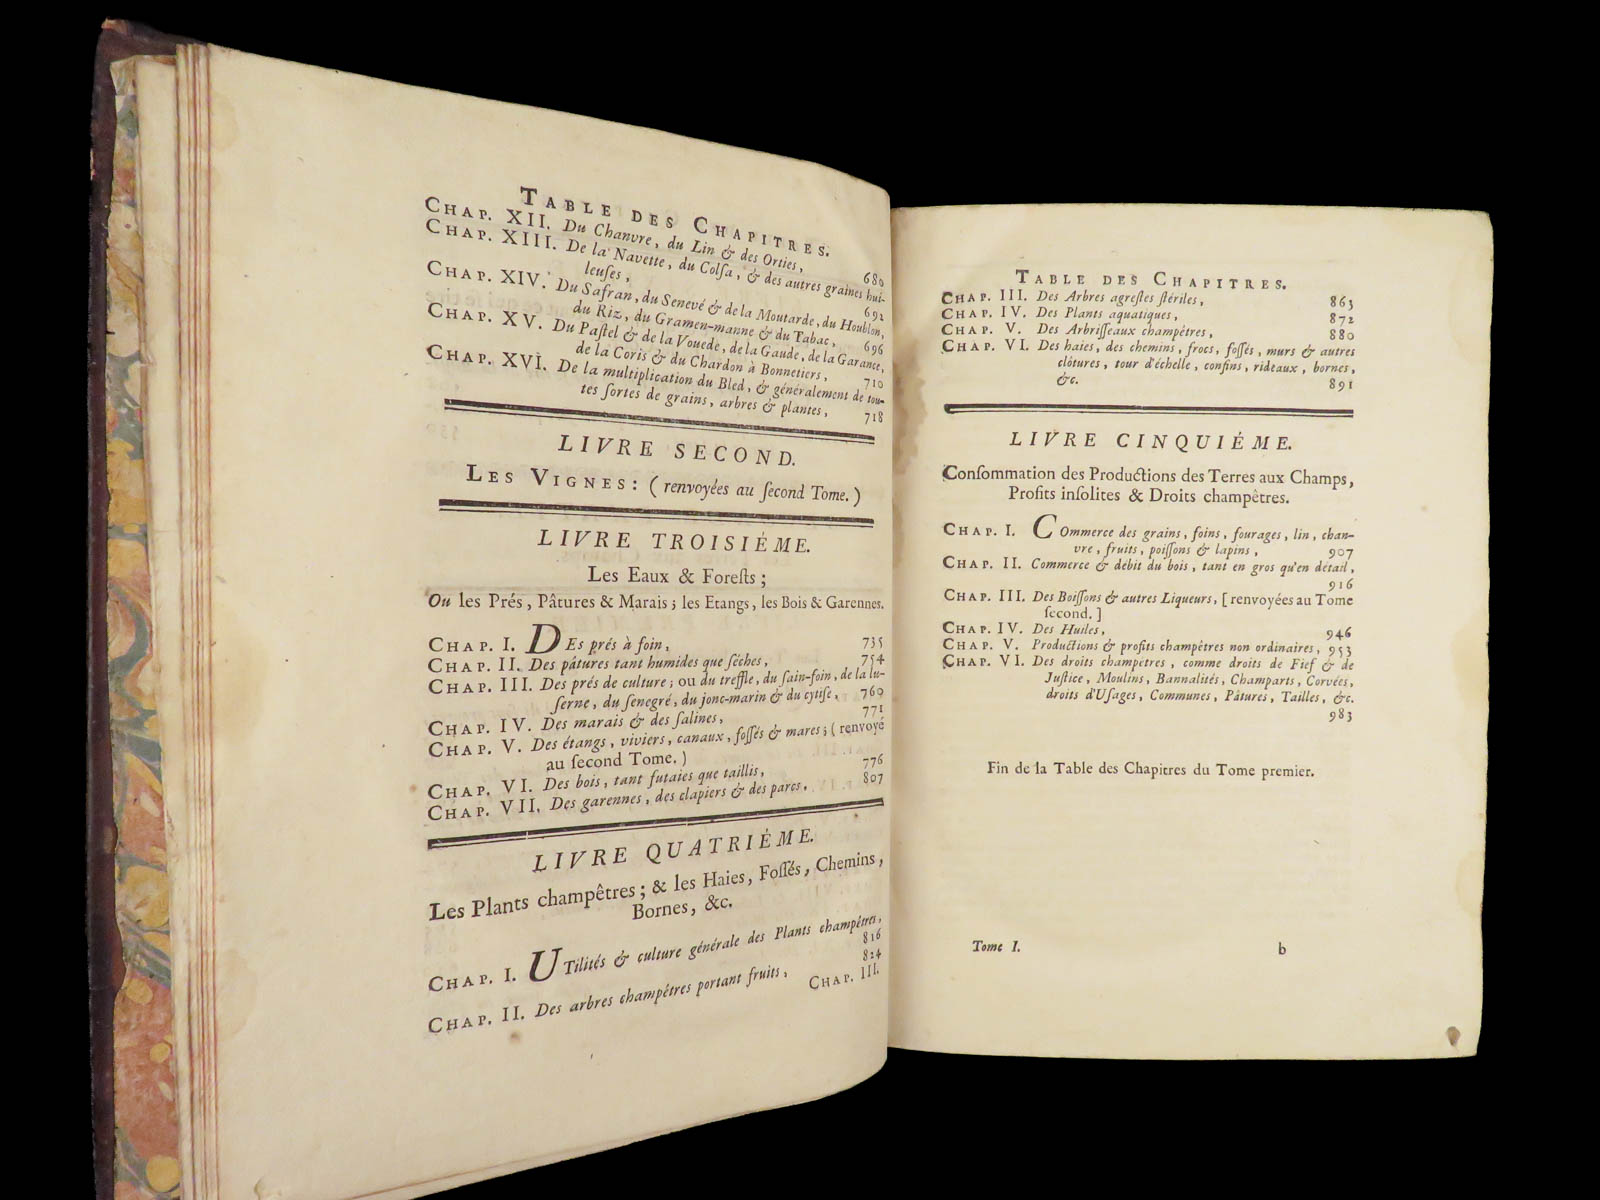 TABLE DES CHAPITRES.
CHAP. XII. Du Chanvre, du Lin & des Orties, 680
CHAP. XIII. De la Navette, du Colſa, & des autres graines hui-
leuſes, 692
CHAP. XIV. Du Safran, du Senevé & de la Moutarde, du Houblon,
du Riz, du Gramen-manne & du Tabac, 696
CHAP. XV. Du Paſtel & de la Vouede, de la Gaude, de la Garance,
de la Coris & du Chardon à Bonnetiers, 710
CHAP. XVI. De la multiplication du Bled, & généralement de tou-
tes ſortes de grains, arbres & plantes, 718
LIVRE SECOND.
LES VIGNES: (renvoyées au ſecond Tome.)
LIVRE TROISIÉME.
Les Eaux & Foreſts;
Ou les Prés, Pâtures & Marais; les Etangs, les Bois & Garennes.
CHAP. I. DEs prés à foin, 735
CHAP. II. Des pâtures tant humides que ſéches, 754
CHAP. III. Des prés de culture; ou du treffle, du ſain-foin, de la lu-
ſerne, du ſenegré, du jonc-marin & du cytiſe, 760
CHAP. IV. Des marais & des ſalines, 771
CHAP. V. Des étangs, viviers, canaux, foſſés & mares; (renvoyé
au ſecond Tome.)
CHAP. VI. Des bois, tant futaies que taillis, 776
CHAP. VII. Des garennes, des clapiers & des parcs, 807
LIVRE QUATRIÉME.
Les Plants champêtres; & les Haies, Foſſés, Chemins,
Bornes, &c.
CHAP. I. UTilités & culture générale des Plants champêtres,
816
CHAP. II. Des arbres champêtres portant fruits, 824
CHAP. III.
TABLE DES CHAPITRES.
CHAP. III. Des Arbres agreſtes ſtériles, 863
CHAP. IV. Des Plants aquatiques, 872
CHAP. V. Des Arbriſſeaux champêtres, 880
CHAP. VI. Des haies, des chemins, frocs, foſſés, murs & autres
clôtures, tour d'échelle, confins, rideaux, bornes,
&c. 891
LIVRE CINQUIÉME.
Conſommation des Productions des Terres aux Champs,
Profits inſolites & Droits champêtres.
CHAP. I. COmmerce des grains, foins, fourages, lin, chan-
vre, fruits, poiſſons & lapins, 907
CHAP. II. Commerce & débit du bois, tant en gros qu'en détail,
916
CHAP. III. Des Boiſſons & autres Liqueurs, [renvoyées au Tome
ſecond.]
CHAP. IV. Des Huiles, 946
CHAP. V. Productions & profits champêtres non ordinaires, 953
CHAP. VI. Des droits champêtres, comme droits de Fief & de
Juſtice, Moulins, Bannalités, Champarts, Corvées,
droits d'Uſages, Communes, Pâtures, Tailles, &c.
983
Fin de la Table des Chapitres du Tome premier.
Tome I. b